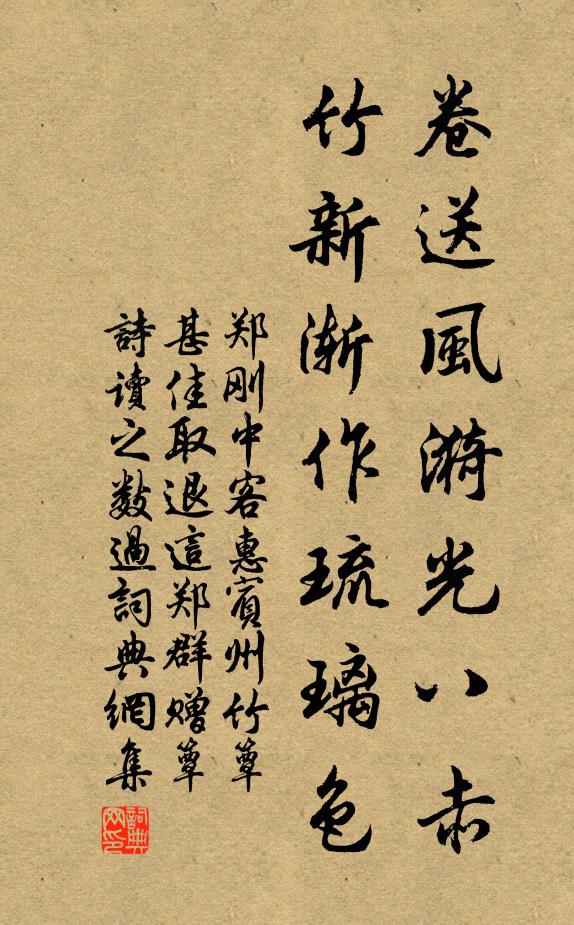 卷送風漪光八赤
竹新漸作琉璃色
郑刚中客惠賓州竹簟
甚佳取退這郑群贈簟
詩讀之數過詞典網集
詞典网印